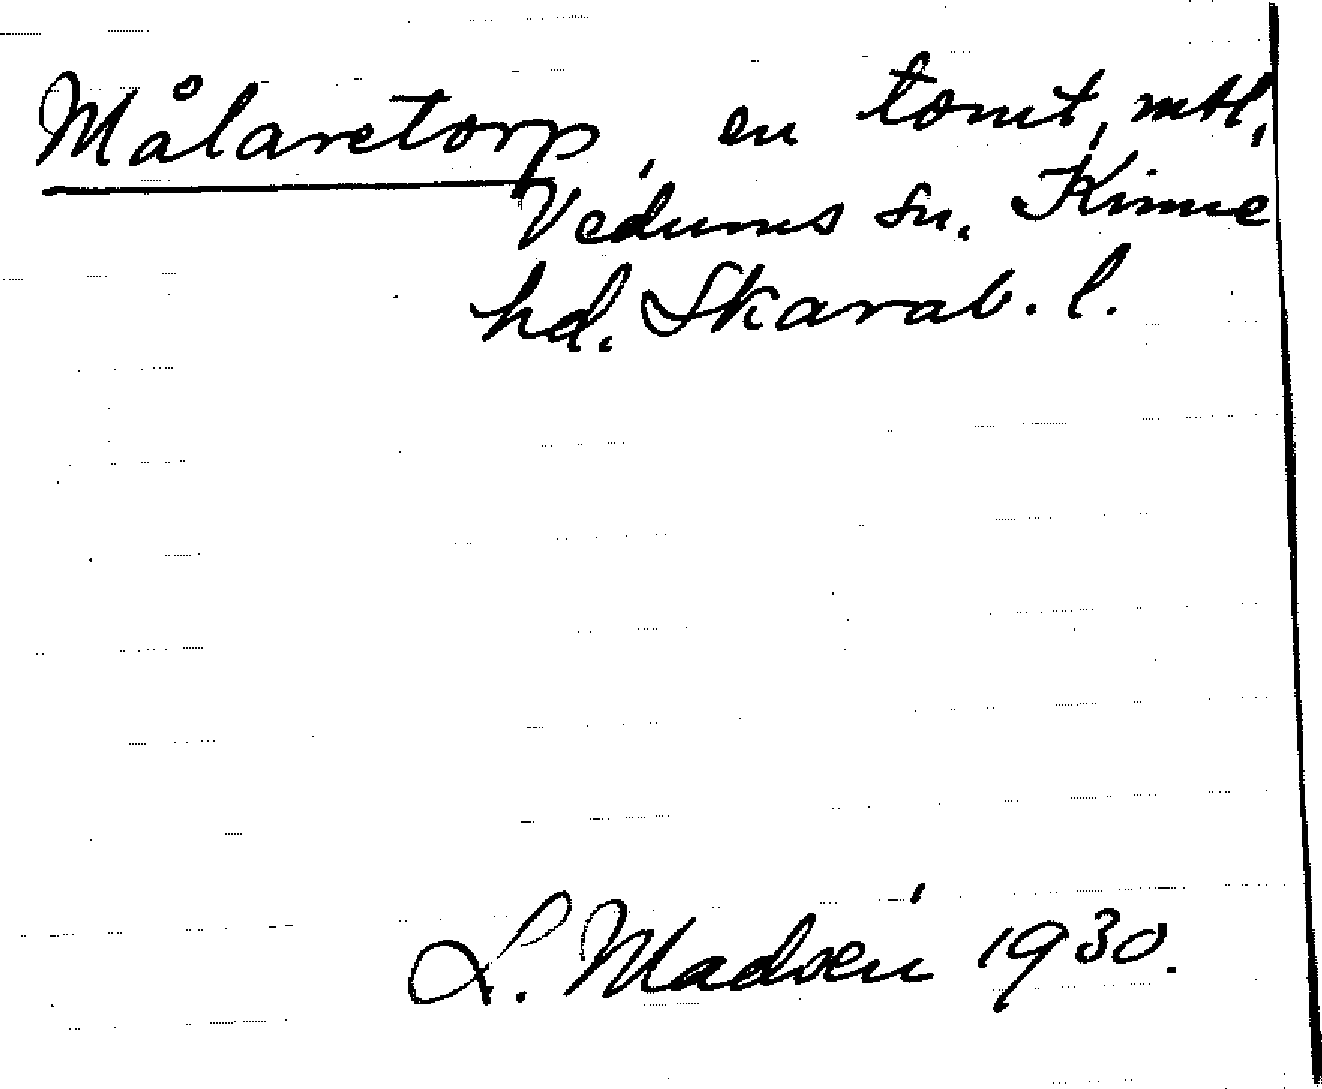 Målaretorp, en tomt, mtl.
Vedums sn. Kinne
hd. Skarab. l.
L. Madsén 1930.